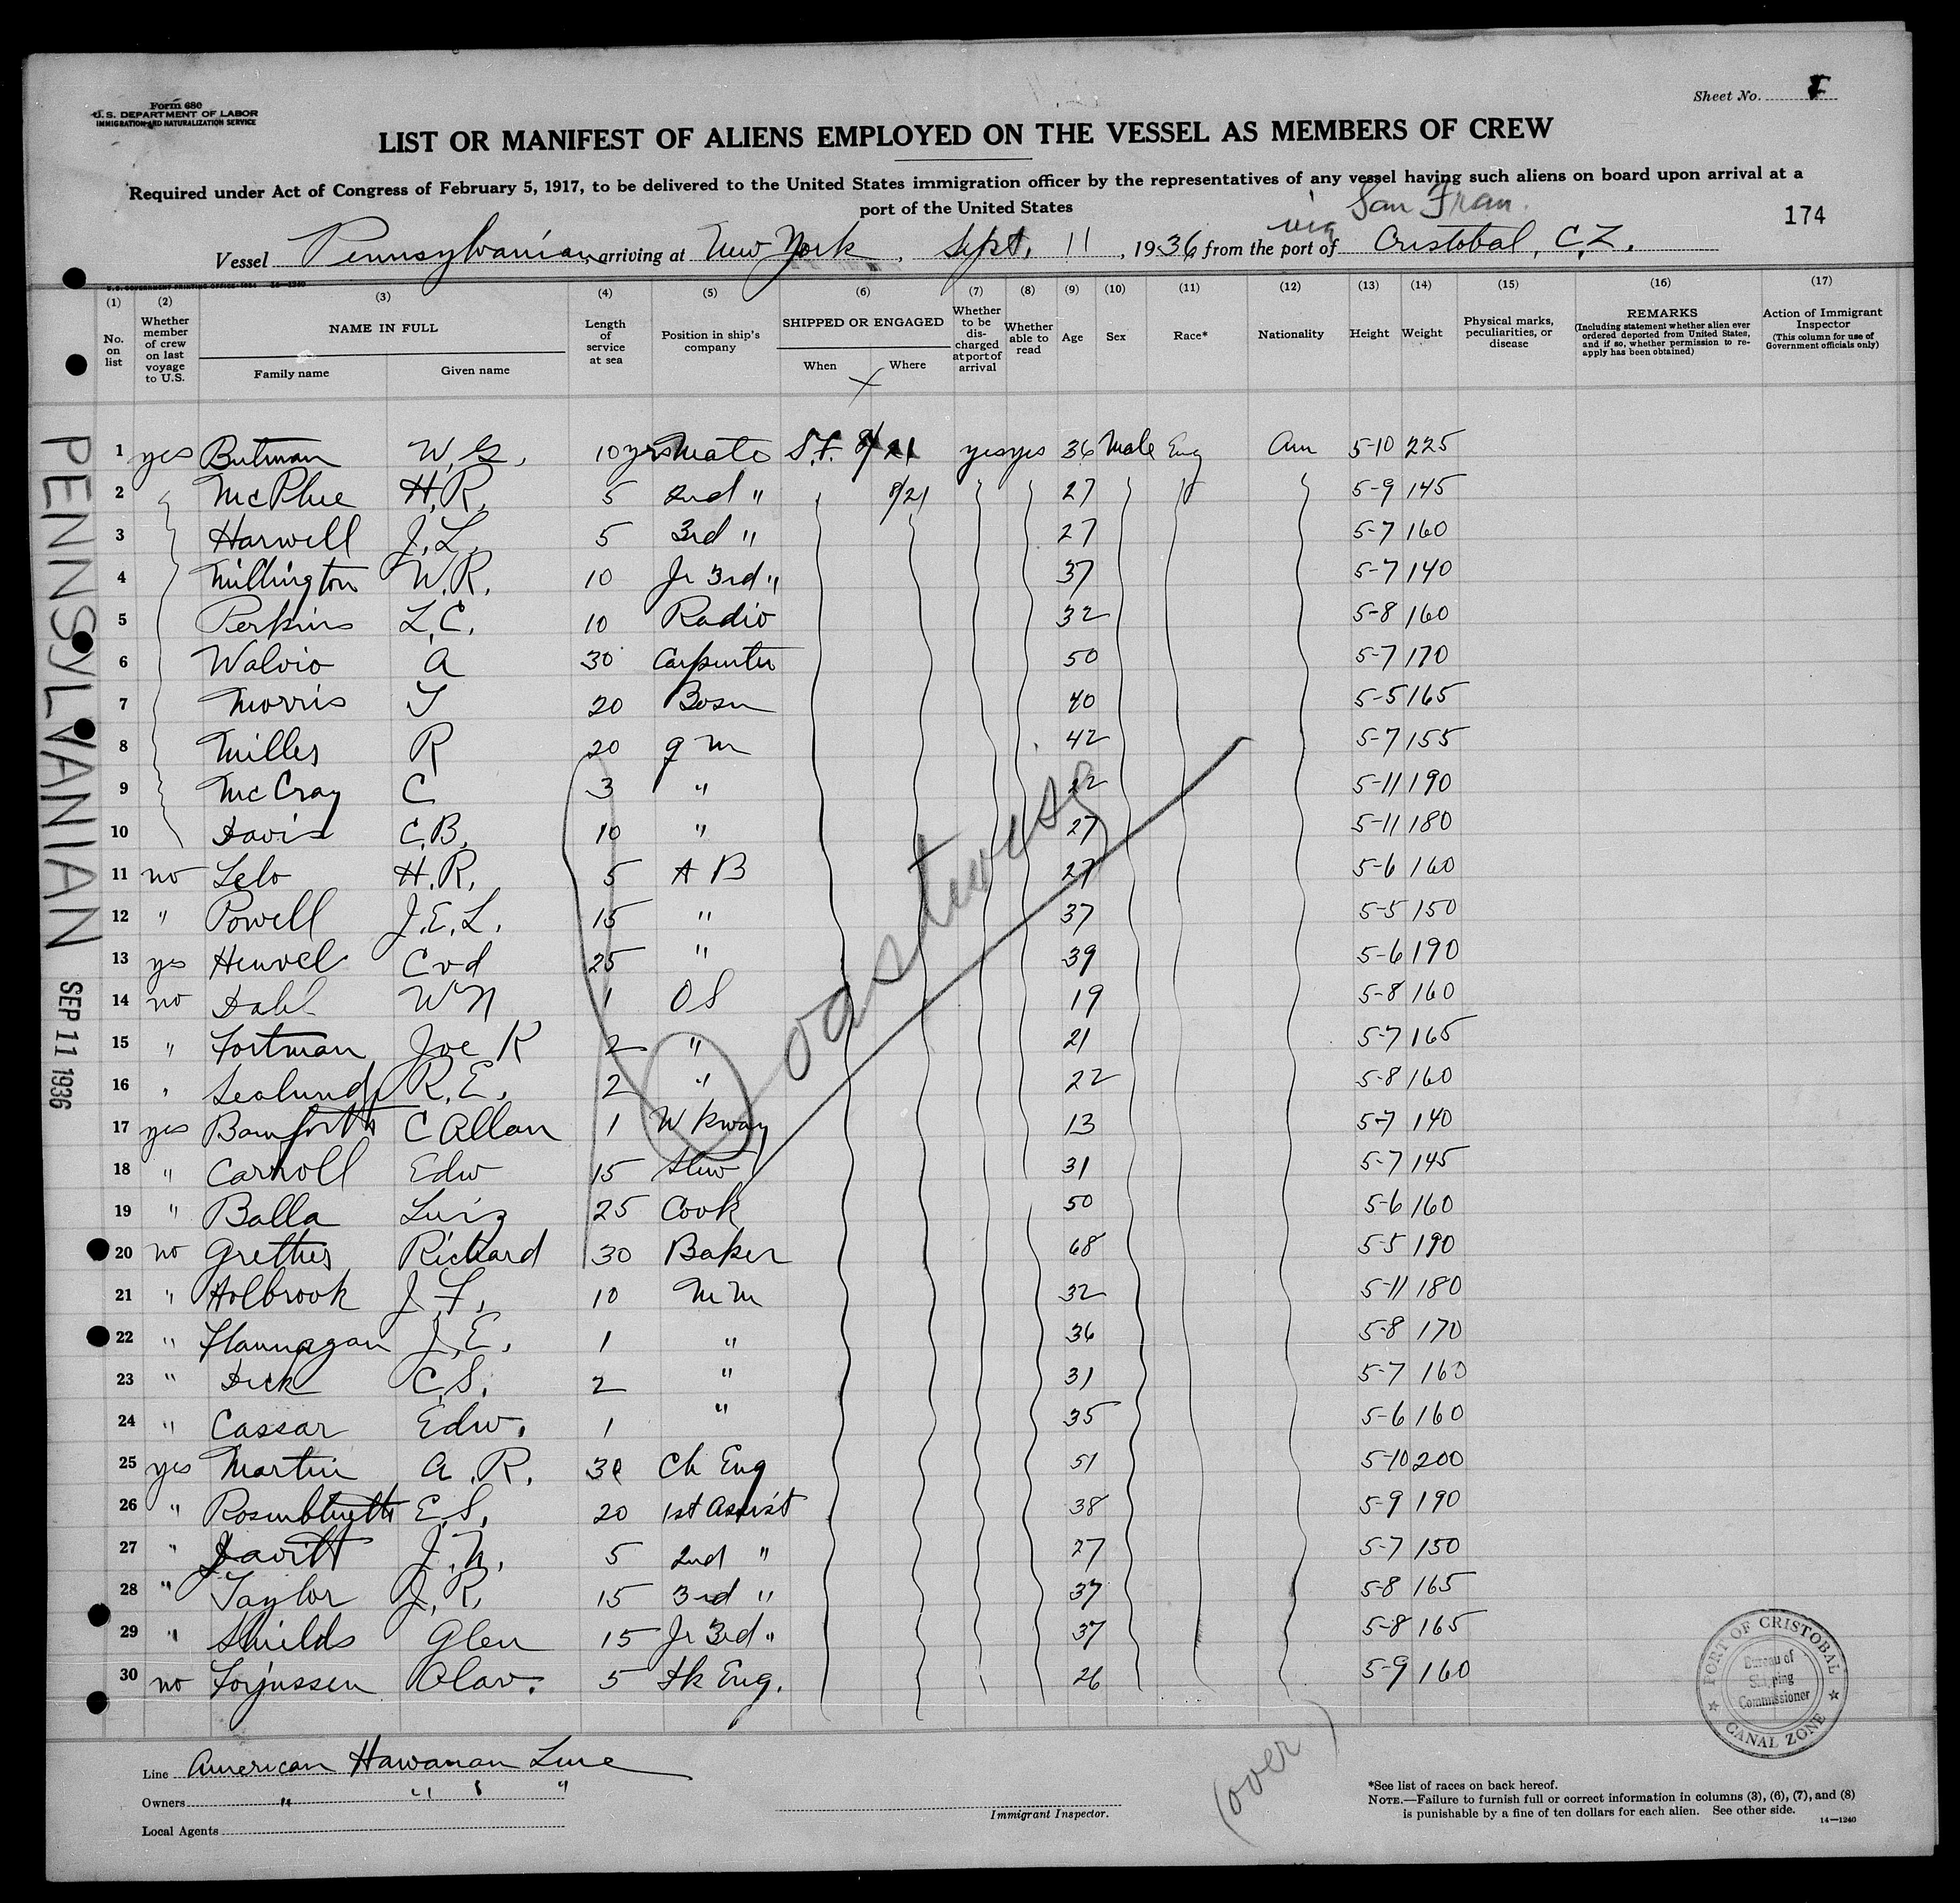 Form 680
U.S. DEPARTMENT OF LABOR
IMMIGRATION AND NATURALIZATION SERVICE
Sheet No.
LIST OR MANIFEST OF ALIENS EMPLOYED ON THE VESSEL AS MEMBERS OF CREW
Required under Act of Congress of February 5, 1917, to be delivered to the United States immigration officer by the representatives of any vessel having such aliens on board upon arrival at a
port of the United States
via San Fran.
174
Vessel Pennsylvanian, arriving at New York, Sept. 11, 1936, from the port of Cristobal, C.Z.
U.S. GOVERNMENT PRINTING OFFICE: 1934 14—1240
(1) (2) (3) (4) (5) (6) (7) (8) (9) (10) (11) (12) (13) (14) (15) (16) (17)
No. on list
Whether member of crew on last voyage to U.S.
NAME IN FULL
Family name Given name
Length of service at sea
Position in ship's company
SHIPPED OR ENGAGED
When Where
Whether to be discharged at port of arrival
Whether able to read
Age
Sex
Race*
Nationality
Height
Weight
Physical marks, peculiarities, or disease
REMARKS
(Including statement whether alien ever ordered deported from United States, and if so, whether permission to reapply has been obtained)
Action of Immigrant Inspector
(This column for use of Government officials only)
1 yes Butman W. G. 10 yrs Mate S.F. 8/21 yes yes 36 Male Eng Am 5-10 225
2 McPhee H.R. 5 2nd " 8/21 27 5-9 145
3 Harwell J.L. 5 3rd " 27 5-7 160
4 Millington W.R. 10 Jr 3rd " 37 5-7 140
5 Perkins L.C. 10 Radio 32 5-8 160
6 Walvio A 30 Carpenter 50 5-7 170
7 Morris T 20 Bosn 40 5-5 165
8 Milles R 20 q m 42 5-7 155
9 McCray C 3 " 22 5-11 190
10 Davis C.B. 10 " 27 5-11 180
11 no Lelo H.R. 5 A B 27 5-6 160
12 " Powell J.E.L. 15 " 37 5-5 150
13 yes Heuvel C v d 25 " 39 5-6 190
14 no Dahl W N 1 O S 19 5-8 160
15 " Fortman Joe K 2 " 21 5-7 165
16 " Sealund R.E. 2 " 22 5-8 160
17 yes Bamforth C Allan 1 Wkway 13 5-7 140
18 " Carroll Edw 15 Stew 31 5-7 145
19 " Balla Luis 25 Cook 50 5-6 160
20 no Grether Richard 30 Baker 68 5-5 190
21 " Holbrook J.F. 10 M M 32 5-11 180
22 " Flannagan J.E. 1 " 36 5-8 170
23 " Dick C.S. 2 " 31 5-7 160
24 " Cassar Edw. 1 " 35 5-6 160
25 yes Martin A.R. 30 Ch Eng 51 5-10 200
26 " E.S. 20 1st Assist 38 5-9 190
27 " Davitt J.N. 5 2nd " 27 5-7 150
28 " Taylor J.R. 15 3rd " 37 5-8 165
29 " Shields Glen 15 Jr 3rd " 37 5-8 165
30 no Torjussen Olav. 5 Dk Eng. 26 5-9 160
Coastwise
PENNSYLVANIAN
SEP 11 1936
PORT OF CRISTOBAL
Bureau of
Shipping
Commissioner
CANAL ZONE
Line American Hawaiian Line
Owners " " " "
Local Agents
Immigrant Inspector.
(over)
*See list of races on back hereof.
NOTE.—Failure to furnish full or correct information in columns (3), (6), (7), and (8)
is punishable by a fine of ten dollars for each alien. See other side.
14—1240